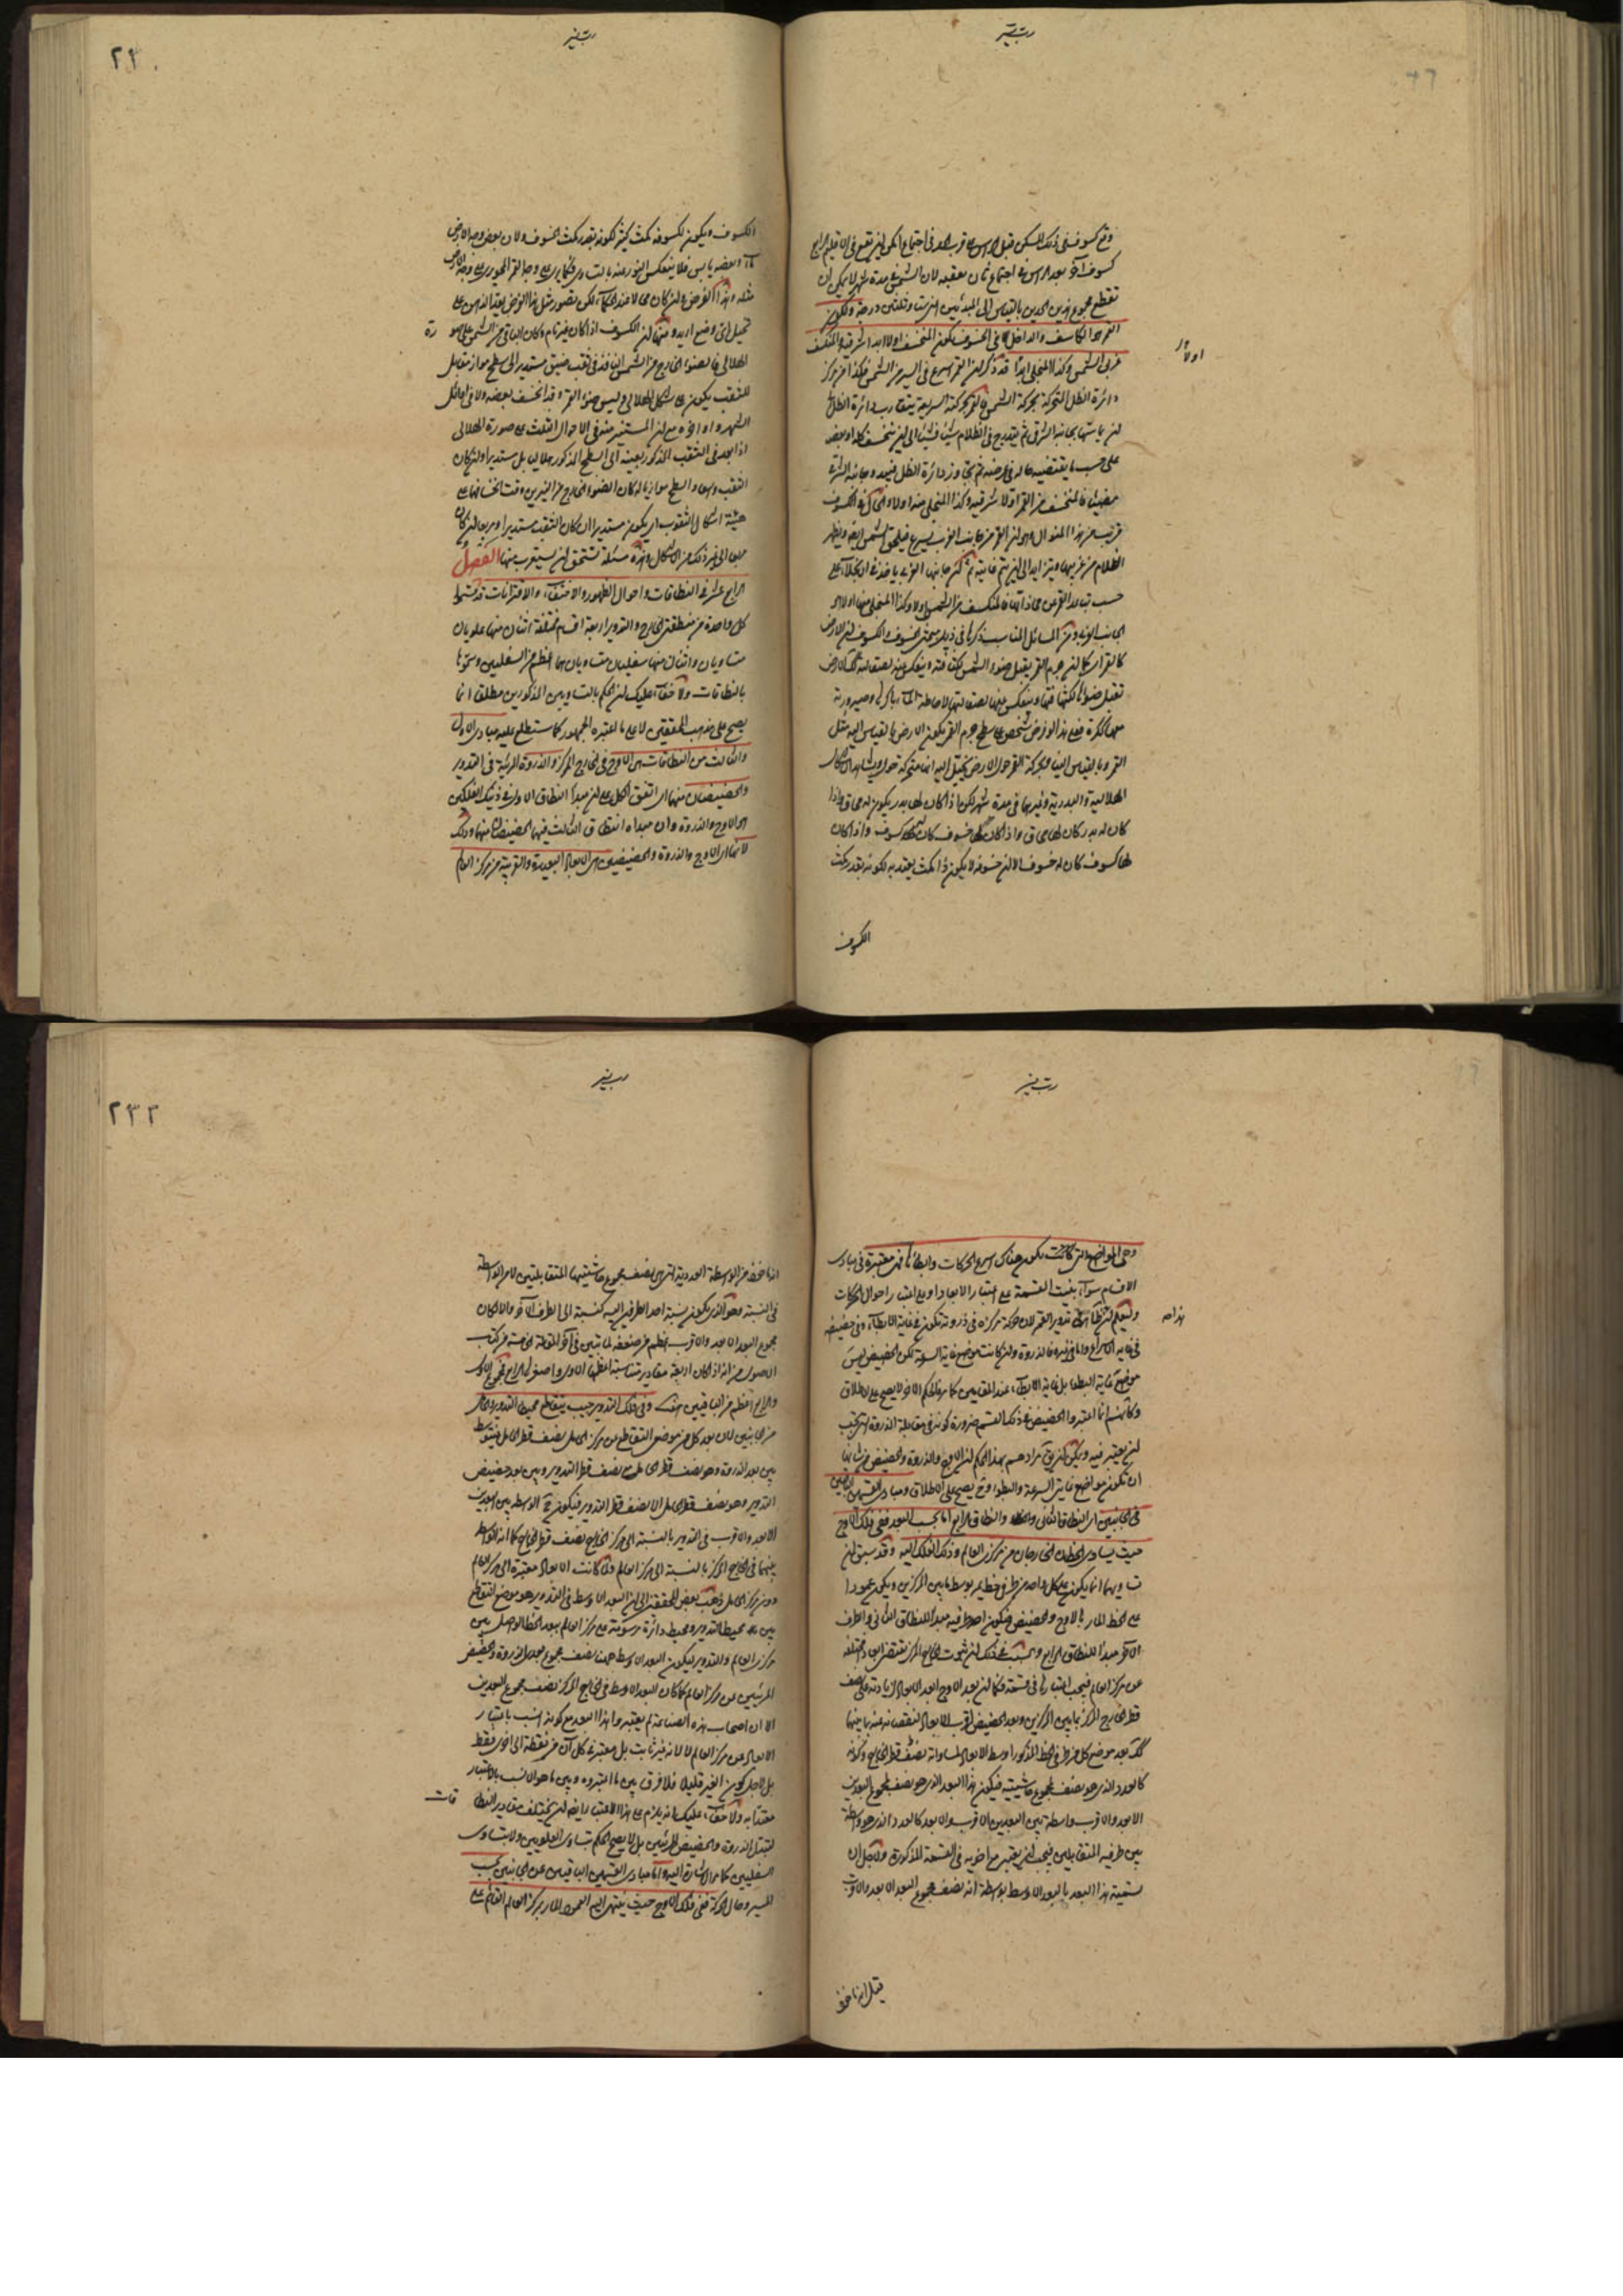 وقع كسوف ففي ذلك المسكن قبل الراس على قرب العقد في اجتماع امكن ان يقع في الاقليم الرابع
كسوف آخر بعد الراس في اجتماع ثان يعقبه لان الشمس في مدة شهر لا يمكن ان
تقطع مجموع هذين الحدين بالقياس الى المبدئين اعني ستا وثلثين درجة ولكون
القمر هو الكاسف والداخل في الخسوف يكون المنخسف اولا ابدا شرقيه والمنكسف
غربي الشمس وكذا المنجلي ابدا قد ذكر ان القمر اسرع في السير من الشمس فكذا من مركز
دائرة الظل المتحركة بحركة الشمس فالقمر بحركته السريعة يتقارب دائرة الظل الى
ان يماسها بجانبه الشرقي ثم يتدرج في الظلام شيئا فشيئا الى ان ينخسف كله او بعضه
على حسب ما يقتضيه حاله في عرضه ثم يتجاوز دائرة الظل فيبدو جانبه الشرقي
مضيئا فالمنخسف من القمر اولا شرقيه وكذا المنجلي منه اولا والحال في الكسوف
قريب من هذا المنوال وهو ان القمر من جانب الغرب يسير فيلحق الشمس ويظهر
الظلام من غربيها ويتزايد الى ان يتم غايته ثم يأخذ في الانجلاء على
حسب تباعد القمر عن محاذاتها فالمنكسف من الشمس اولا وكذا المنجلي منها اولا هو
الجانب الغربي ومن المسائل المناسب ذكرها في ذيل مبحثي الخسوف والكسوف ان الارض
كالقمر كما ان جرم القمر يقبل ضوء الشمس لكثافته وينعكس عنه لصقالته كذلك الارض
تقبل ضوءها لكثافتها وينعكس عنها لصقالتها لاحاطة الماء باكثرها وصيرورته
معها ككرة فعلى هذا لو فرض شخص على سطح جرم القمر يكون الارض بالقياس اليه مثل
القمر وبالقياس الينا وبحركة القمر حول الارض يخيل اليه انها متحركة حوله ويشاهد الاشكال
الهلالية والبدرية وغيرهما في مدة شهر لكن اذا كان لها بدر يكون له محاق واذا
كان له بدر كان لها محاق واذا كان لنا خسوف كان له كسوف واذا كان
لها كسوف كان له خسوف الا ان خسوفه لا يكون ذا مكث يعتد به لكونه بقدر مكث
الكسوف
اولا
الكسوف ويكون لكسوفه مكث كثير لكونه بقدر مكث الخسوف ولان بعض وجه الارض
ماء وبعضه يابس فلا ينعكس النور عنه بالتساوي فكما يرى على وجه القمر المحو يرى على وجه الارض
مثله وهذا الفرض وان كان محالا عند الحكماء لكن تصور مثل هذا الفرض يفيد الذهن على
تخيل اي وضع اريد ومنها ان الكسوف اذا كان غير تام وكان الباقي من الشمس على صورة
الهلالي فالضوء الخارج عن الشمس النافذ في ثقب ضيق مستدير الى سطح مواز مقابل
للثقب يكون على شكل الهلالي وليس ضوء القمر وقد انخسف بعضه ولا في اوائل
الشهر واواخره مع ان المستنير منه في الاحوال الثلث على صورة الهلالي
اذا نفذ في الثقب المذكور بعينه الى السطح المذكور هلاليا بل مستديرا وان كان
الثقب واسعا والسطح موازيا له كان الضوء الخارج عن النيرين وقت انخسافهما على
هيئة اشكال الثقوب اي يكون مستديرا ان كان الثقب مستديرا ومربعا ان كان
مربعا الى غير ذلك من الاشكال وهذه مسئلة تستحق ان يستغرب منها الفصل
الرابع عشر في النطاقات واحوال الظهور والاختفاء والاقترانات قد قسموا
كل واحدة من منطقتي الخارج والتدوير اربعة اقسام مختلفة اثنان منها علويان
متساويان واثنان منها سفليان متساويان هما اعظم من السفليين وسموها
بالنطاقات ولا خفاء عليك ان الحكم بالتساوي بين المذكورين مطلقا انما
يصح على مذهب المحققين لا على ما اعتبره الجمهور كما ستطلع عليه مبادي الاول
والثالث من النطاقات هي الاوج في الخارج المركز والذروة المرئية في التدوير
والحضيضان منهما اي اتفق الكل على ان مبدأ النطاق الاول في ذينك الفلكين
هو الاوج والذروة وان مبدأ النطاق الثالث فيهما الحضيضان منهما وذلك
لانهما اي الاوج والذروة والحضيضين هي الابعاد البعيدة والقريبة من مركز العالم
وهي المواضع التي كانت يكون هناك اسرع الحركات وابطأها فهي معتبرة في مبادي
الاقسام سواء بنيت القسمة على اعتبار الابعاد او على اعتبار احوال الحركات
وليعلم ان هذا في تدوير القمر لان حركة مركزه في ذروته تكون في غاية الابطاء وفي حضيضه
في غاية الاسراع واما في غيره فالذروة وان كانت موضع غاية السرعة لكن الحضيض ليس
موضع غاية البطء بل غاية الابطاء عند المقامين كما مر فالحكم الاول لا يصح على الاطلاق
وكأنهم انما اعتبروا الحضيض في ذلك القسم ضرورة كونه في مقابلة الذروة التي يجب
ان يعتبر فيه ويمكن ان يقال مرادهم بهذا الحكم ان الاوج والذروة والحضيض من شأنها
ان تكون مواضع غايتي السرعة والبطوء وح يصح على الاطلاق ومبادي القسمين الباقيين
في الجانبين اي النطاق الثاني والنطاق الرابع اما بحسب البعد ففي فلك الاوج
حيث يتساوى الخطان الخارجان من مركزي العالم وذلك الفلك اليه وقد سبق ان
تساويهما انما يكون على كل واحد من طرفي خط يمر بوسط ما بين المركزين ويكون عمودا
على الخط المار بالاوج والحضيض فيكون احد طرفيه مبدأ للنطاق الثاني والطرف
الآخر مبدأ للنطاق الرابع والسبب في ذلك ان ثبوت الخارج المركز يقتضي ابعادا مختلفة
عن مركز العالم فيجب اعتبارها في قسمته فكما ان بعد الاوج ابعد الابعاد لزيادته على نصف
قطر الخارج المركز بما بين المركزين وبعد الحضيض اقرب الابعاد لنقصانه عنه بما بينهما
كذلك بعد موضع كل من طرفي الخط المذكور اوسط الابعاد لمساواته نصف قطر الخارج وكونه
كالعدد الذي هو نصف مجموع حاشيتيه فيكون هذا البعد الذي هو نصف مجموع البعدين
الابعد والاقرب واسطة بين البعدين الاقرب والابعد كالعدد الذي هو واسطة
بين طرفيه المتقابلين فيجب ان يعتبر مع اخويه في القسمة المذكورة ولاجل ان
تسمية هذا البعد بالبعد الاوسط بواسطة انه نصف مجموع البعد الابعد والاقرب
قيل انه مأخوذ
انه مأخوذ من الواسطة العددية التي هي نصف مجموع حاشيتيها المتقابلتين لا من الواسطة
في النسبة وهو الذي يكون نسبة احد الطرفين اليه كنسبته الى الطرف الآخر والا لكان
مجموع البعد الابعد والاقرب اعظم من ضعفه لما تبين في آخر المقالة الخامسة من كتاب
الاصول من انه اذا كان اربعة مقادير متناسبة اعظمها الاول واصغرها الرابع فمجموع الاول
والرابع اعظم من الباقيين هف وفي فلك التدوير حيث يتقاطع محيطا التدوير والحامل
من الجانبين لان بعد كل من موضعي التقاطع عن مركز الحامل نصف قطر الحامل فيتوسط
بين بعد الذروة وهو نصف قطر الحامل مع نصف قطر التدوير وبين بعد حضيض
التدوير وهو نصف قطر الحامل الا نصف قطر التدوير فيكون هو الواسطة بين البعدين
الابعد والاقرب في التدوير بالنسبة الى مركز الخارج نصف قطر الخارج كما انه الواسط
بينهما في الخارج المركز بالنسبة الى مركز العالم ولما كانت الابعاد معتبرة الى مركز العالم
دون مركز الحامل ذهب بعض المحققين الى ان البعد الاوسط في التدوير هو موضع التقاطع
بين محيط التدوير ومحيط دائرة مرسومة على مركز العالم ببعد الخط الواصل بين
مركزي العالم والتدوير ليكون البعد الاوسط هناك نصف مجموع بعدي الذروة والحضيض
المرئيين عن مركز العالم كما كان البعد الاوسط في الخارج المركز نصف مجموع البعدين
الا ان اصحاب هذه الصناعة لم يعتبروا هذا البعد مع كونه انسب باعتبار
الابعاد عن مركز العالم لا لانه غير ثابت بل معتبر في كل آن من نقطة الى اخرى فقط
بل لاجل كون التغير قليلا فلا فرق بين ما اعتبروه وبين ما هو الانسب بالاعتبار
معتدا به ولا خفاء عليك انه يلزم على هذا الاعتبار ايضا ان يختلف مقادير النطاقات
لتبدل الذروة والحضيض المرئيين بل لا يصح الحكم بتساوي العلويين ولا بتساوي
السفليين كما مر الاشارة اليه واما مبادي القسمين الباقيين عن الجانبين بحسب
المسير وحال الحركة ففي فلك الاوج حيث ينتهي اليه العمود المار بمركز العالم القائم على